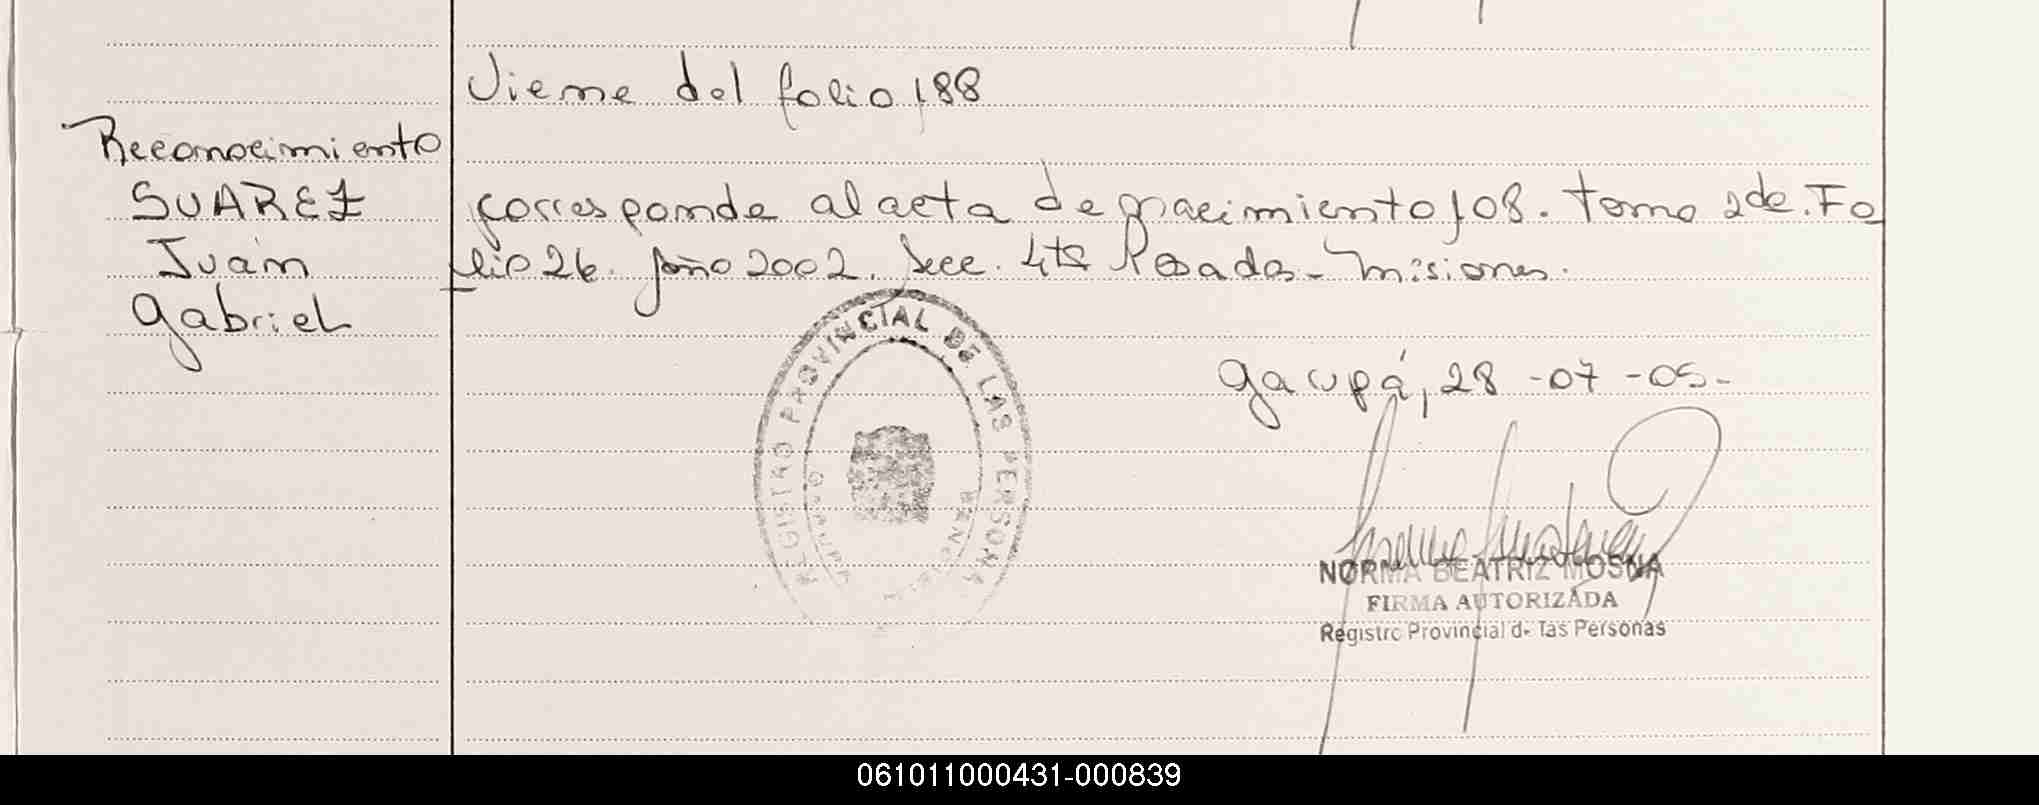 Viene del folio 188
Reconocimiento
SUAREZ
Juan
Gabriel
corresponde al acta de nacimiento 108. tomo 2de. Fo
lio 26. año 2002. Secc. 4ta Posadas - Misiones.
REGISTRO PROVINCIAL DE LAS PERSONAS
Garupá, 28 - 07 - 05 -
NORMA BEATRIZ MOSNA
FIRMA AUTORIZADA
Registro Provincial de las Personas
061011000431-000839